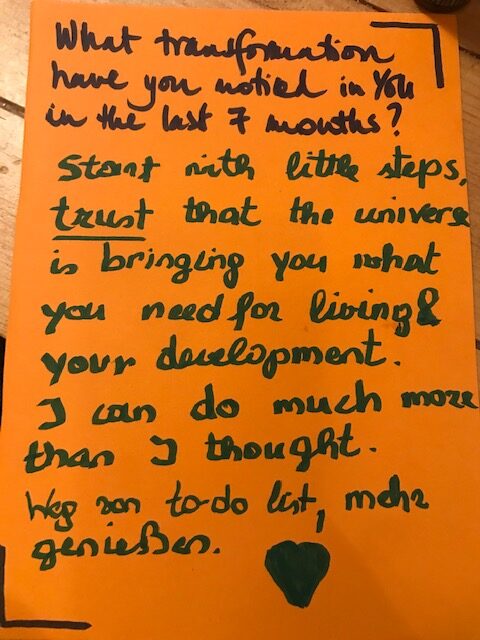 What transformation
have you noticed in You
in the last 7 months?
Start with little steps,
trust that the universe
is bringing you what
you need for living &
your development.
I can do much more
than I thought.
Weg von to-do list, mehr
genießen.